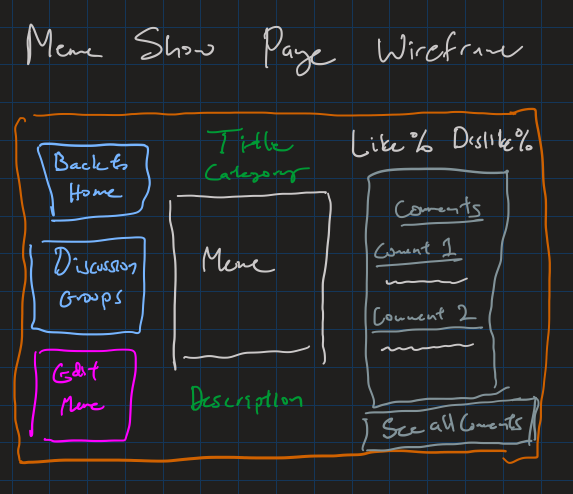 Meme Show Page Wireframe
Back to
Home
Discussion
Groups
Edit
Meme
Title
Category
Meme
Description
Like% Dislike%
Comments
Coment 1
Comment 2
See all Coments